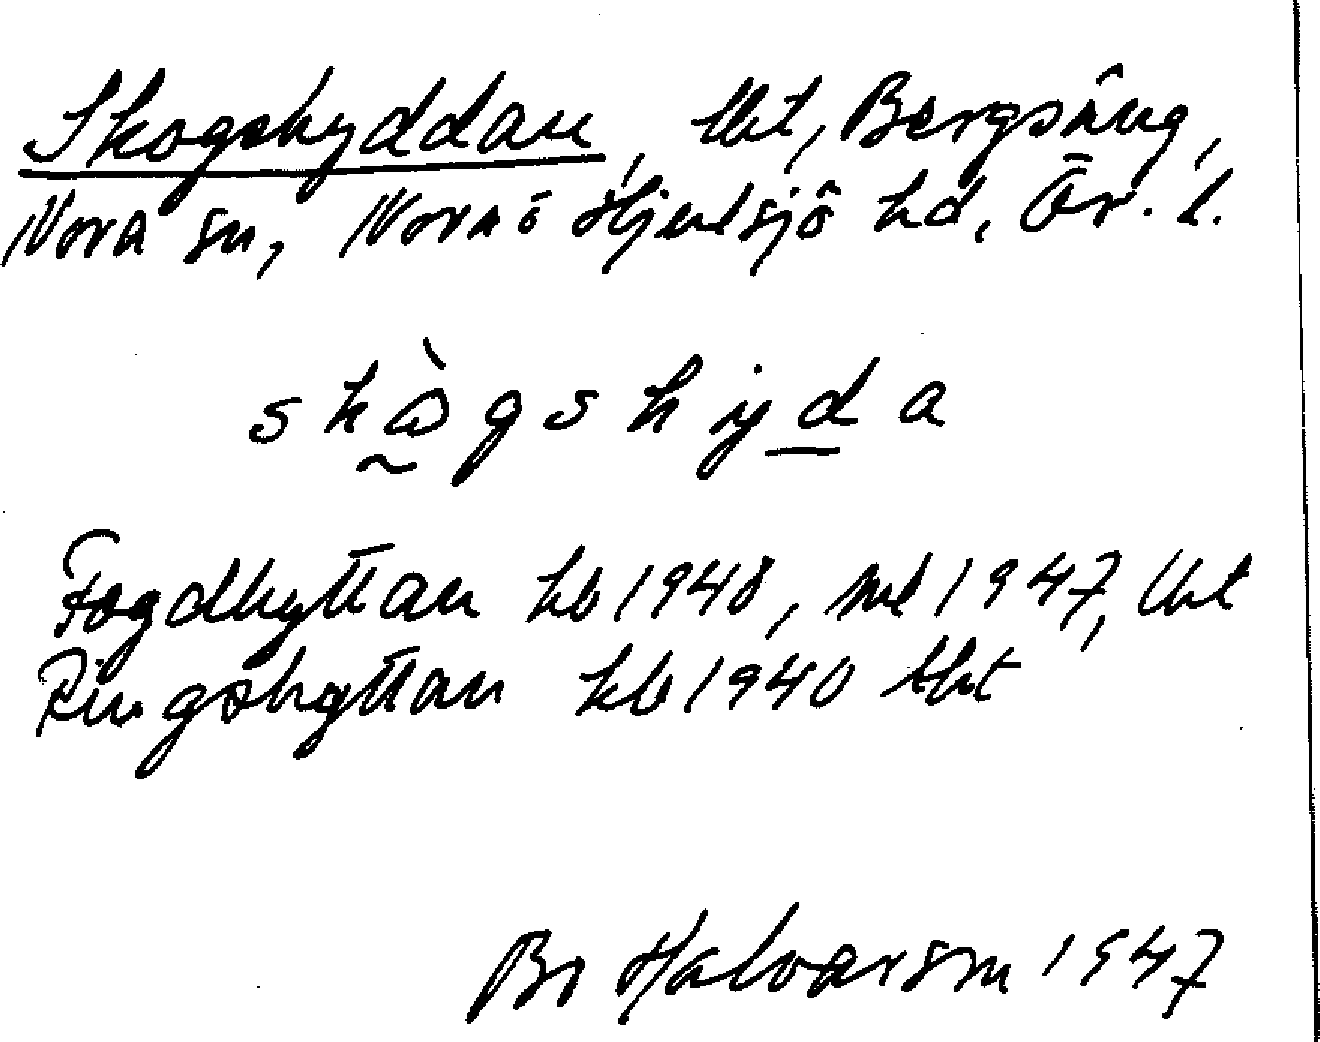 Skogshyddan, tht, Bergsäng,
Nora sn, Nora ö Hjulsjö hd, Ör. l.
skògshyda
Fogdhyttan kb 1948, ml 1947, tht
Ringshyttan kb 1940 tht
Bo Halvarson 1947